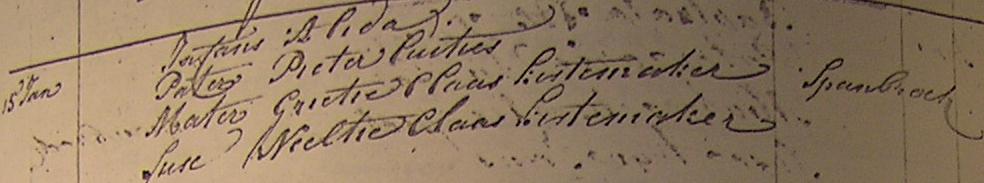 15 Jan Infans Alida
Pater Pieter Luities
Mater Grietie Claas Kistemaker Spanbroek
Susc Neeltie Claas Kistemaker